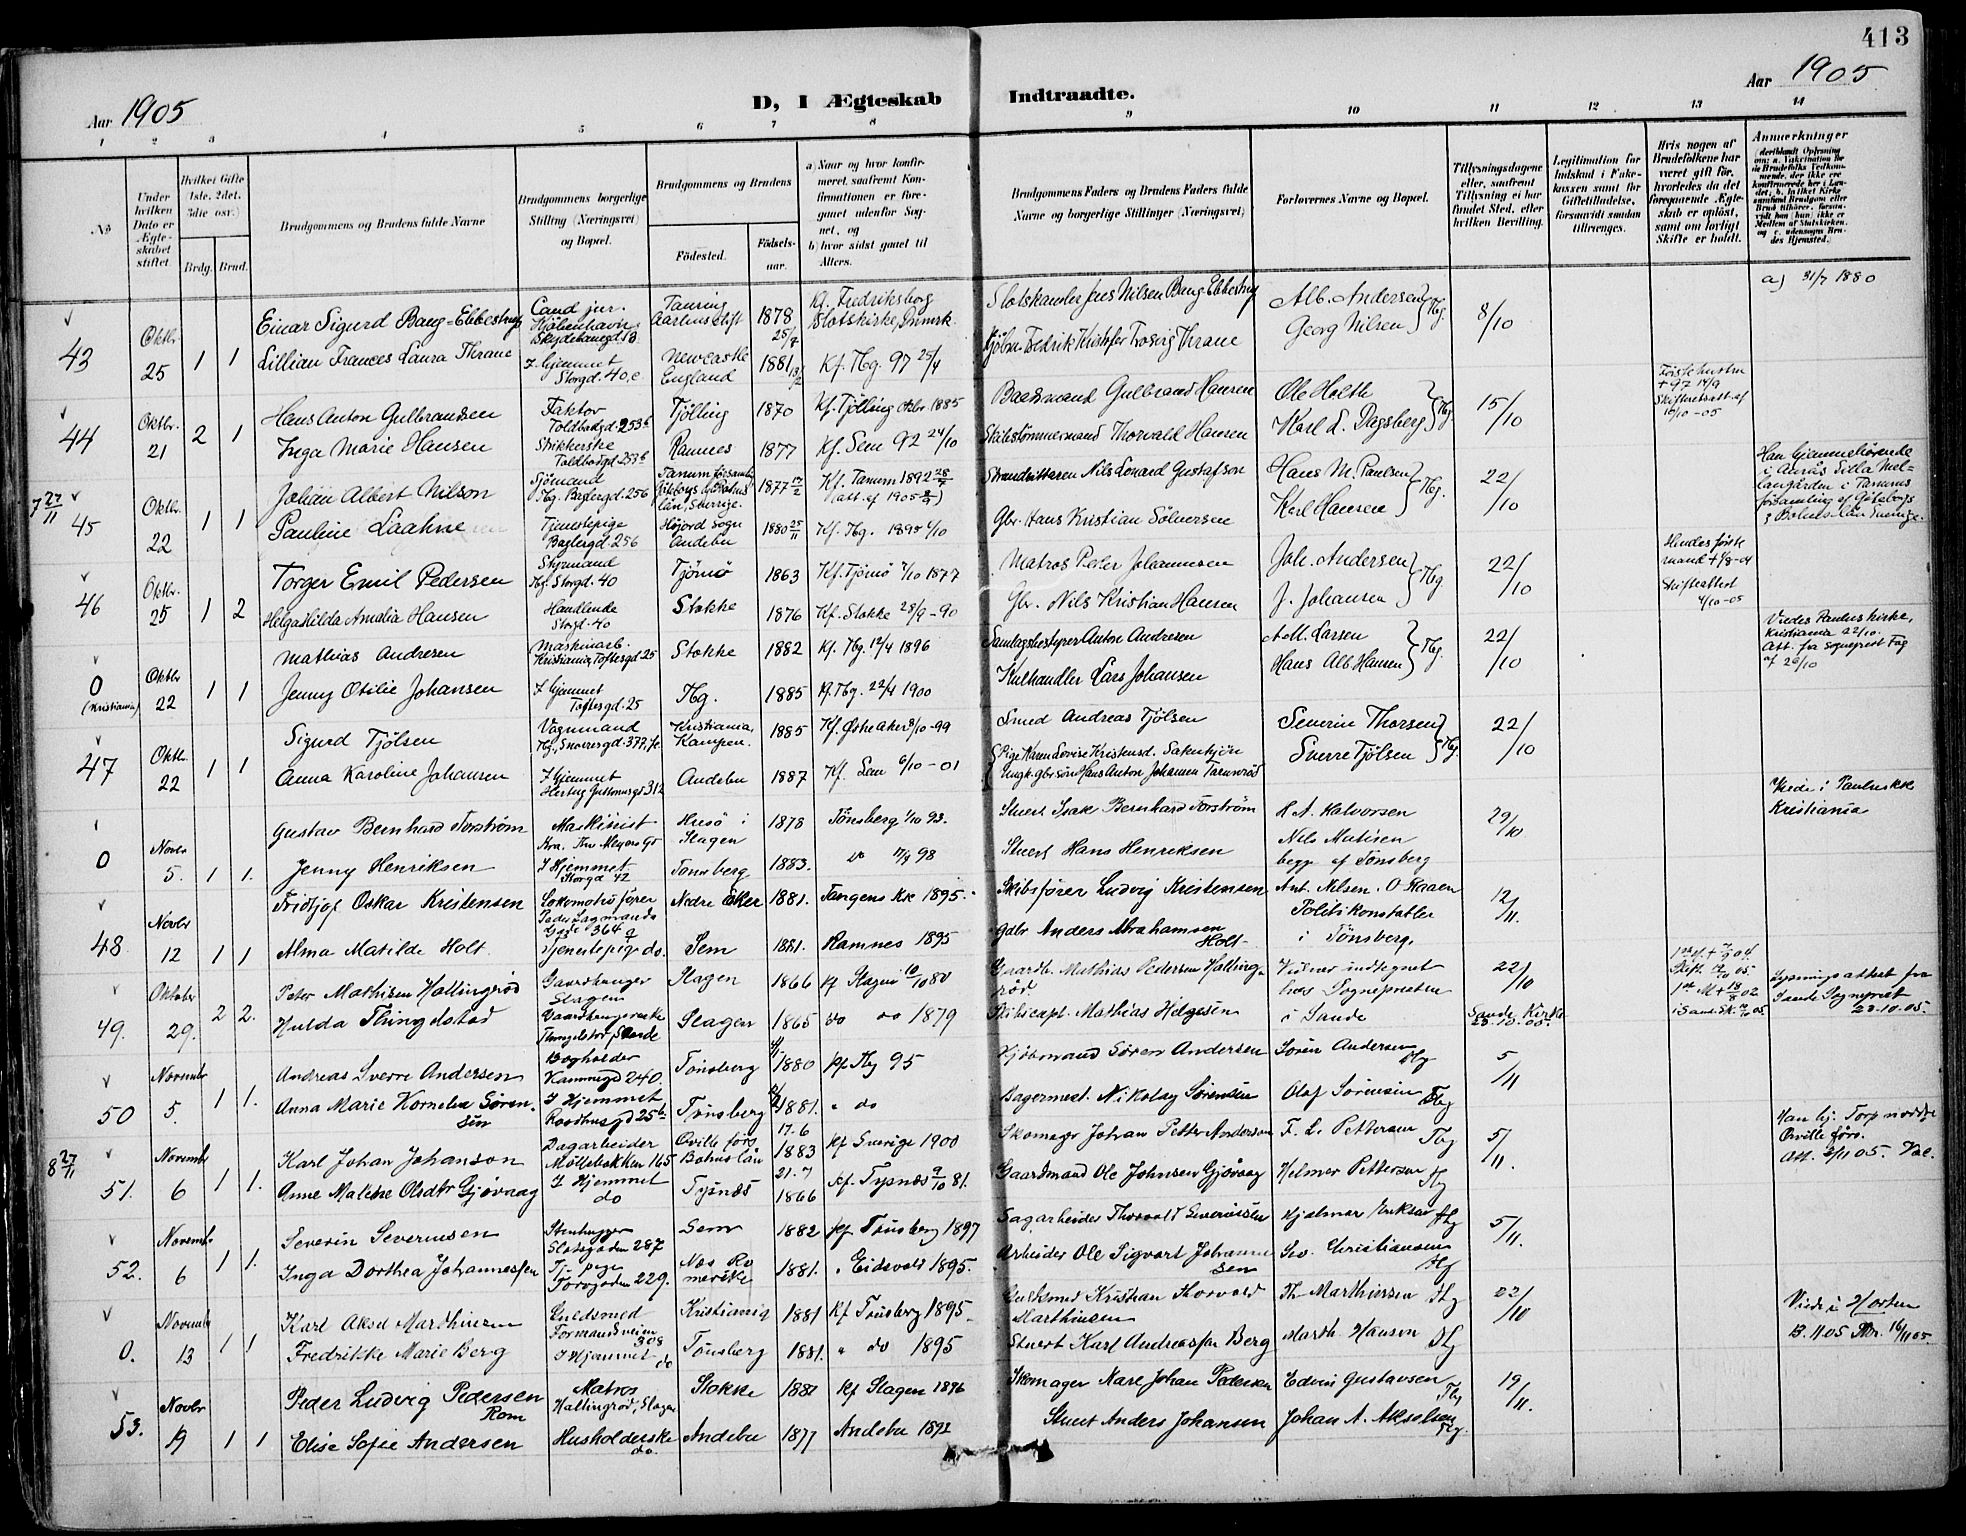 413
Aar 1905
D, I Ægteskab Indtraadte.
Aar 1905
1 2 3 4 5 6 7 8 9 10 11 12 13 14
No
Under hvilken Dato er Ægteskabet stiftet
Hvilket Gifte 1ste, 2det, 3die osv.)
Brdg. Brud.
Brudgommens og Brudens fulde Navne
Brudgommens borgerlige Stilling (Næringsvei) og Bopæl.
Brudgommens og Brudens
Födested.
Födselsaar.
a) Naar og hvor konfirmeret, saafremt Konfirmationen er foregaaet udenfor Sognet, og
b) hvor sidst gaaet til Alters.
Brudgommens Faders og Brudens Faders fulde Navne og borgerlige Stillinger (Næringsvei)
Forlovernes Navne og Bopæl.
Tillysningsdagene eller, saafremt Tillysning ei har fundet Sted, efter hvilken Bevilling.
Legitimation for Indskud i Enkekassen samt for Giftetilladelse, forsaavidt saadan tiltrænges.
Hvis nogen af Brudefolkene har været gift før, hvorledes da det foregaaende Ægteskab er opløst, samt om lovligt Skifte er holdt.
Anmerkninger
43 Oktbr. 25 1 1
Einar Sigurd Bang-Ebbestrup Cand jur. Kjøbenhavn Tauring Aarhus Stift 1878 25/7 Kf. Fredriksborg Slotskirke, Dnmrk. Slotskansler Jens Nilsen Bang-Ebbestrup Alb. Andersen Tbg. 8/10 a) 31/7 1880
Lillian Frances Laura Thrane I Hjemmet Storgd. 40,c Newcastle England 1881 13/2 Kf. Tbg. 97 25/4 Kjøbm. Fredrik Kristofer Ludvig Thrane Georg Nilsen
44 Oktbr. 21 2 1
Hans Anton Gulbrandsen Faktor Toldbodgd. 253b Tjølling 1870 Kf. Tjølling Oktbr 1885 Baadsmand Gulbrand Hansen Ole Holth Tbg. 15/10 Første hustru + 97 14/9 Skifteattest af 16/10-05
Inga Marie Hansen Strikkerske Toldbodgd. 253b Ramnes 1877 Kf. Sem 92 24/10 Skibstømmermand Thorvald Hansen Karl L. Dagsberg
7 27/11 45 Oktbr. 22 1 1
Johan Albert Nilson Sjömand Tbg. Baglergd. 256 Tanum församl. Göteborgs och Bohus län, Sverige. 1877 12/2 Kf. Tanum 1892 28/7 (att. af 1905 8/9) Strandsitteren Nils Leonard Gustafson Hans M. Paulsen Tbg. 22/10 Han hjemmehörende i
Pauline Laahne Tjenestepige Baglergd. 256 Höjord sogn Andebu 1880 25/11 Kf. Tbg. 1895 1/10 Gbr. Hans Kristian Sölversen Karl Hansen
46 Oktbr. 25 1 2
Torger Emil Pedersen Styrmand Tbg. Storgd. 40 Tjömö 1863 Kf. Tjömö 7/10 1877 Matros Peder Johannesen Joh. Andersen Tbg 22/10 Hendes förste mand + 4/8-04 Skifteattest 4/10-05
Helga Hilda Amalia Hansen Handlende Storgd. 40 Stokke 1876 Kf. Stokke 28/9-90 Gbr. Nils Kristian Hansen J. Johansen
0 (Kristiania) Oktbr 22 1 1
Mathias Andresen Maskinarb. Kristiania, Toftesgd. 25 Stokke 1882 Kf. Tbg. 12/4 1896 Samlagsbestyrer Anton Andresen A. M. Larsen Tbg. 22/10 Viedes Paulus kirke, Kristiania 22/10. Att. fra sogneprest Fag af 26/10
Jenny Otilie Johansen I hjemmet Toftesgd. 25 Tbg. 1885 Kf. Tbg. 22/4 1900 Kulhandler Lars Johansen Hans Alb. Hansen
47 Oktbr. 22 1 1
Sigurd Tjölsen Vognmand Kristiania, Kampen. 1885 Kf. Østre Aker 8/10-99 Smed Andreas Tjölsen Severin Thorsen Tbg. 22/10
Anna Karoline Johansen I hjemmet Hertug Guttormsgd 312 Andebu 1887 Kf. Sem 6/10-01 Pige Karen Lovise Kristensd. Ungk. gbr.sön Hans Anton Johansen Tarnerød Sverre Tjölsen
0 Novbr 5. 1 1.
Gustav Bernhard Torström Maskinist Kra. Thv. Meyers gt Husö i Slagen 1878 Tönsberg 1/10 93. Stuert Isak Bernhard Torström H. A. Halvorsen 29/10 Viede i Paulus kk Kristiania
Jenny Henriksen I Hjemmet Storgd 42 Tønsberg 1883. do 98 Stuert Hans Henriksen Nils Matisen begge af Tönsberg
48 Novbr 12 1 1
Fridtjof Oskar Kristensen Lokomotivförer Nedre Eker 1881. Tangens kk 1895. Skibsfører Ludvig Kristensen Ant. Nilsen, O Haaen 12/11.
Alma Matilde Holt Tjenestepige do. Sem 1881. Ramnes 1895 Gdbr Anders Abrahamsen Holt Politikonstabler i Tönsberg.
49. Oktober 29. 2 2.
Peter Mathisen Hallingrød Gaardbruger Slagen Slagen 1866 Kf Slagen 10/10 80 Gaardb. Mathias Pedersen Hallingrød Vidner indtegnet 22/10 Lysningsattest fra Sande Sogneprest 23.10.05.
Hulda Thingelstad Gaardbrugerenke Slagen 1865 do do 1879 Skibscapt. Mathias Helgesen hos Sognepresten i Sande Sande Kirke
50 Novembr 5. 1 1.
Andreas Sverre Andersen Bogholder Kammegd 240. Tönsberg 1880 Kf Tbg 95 Kjöbmand Søren Andersen Sören Andersen Tbg 5/11
Anna Marie Kornelia Sørensen I Hjemmet Raadhusgd 256 Tønsberg 1881. " do Bagermest. Nikolay Sörensen Olaf Sörensen Tbg
8 27/11 51. Novembr 6 1 1.
Karl Johan Johanson Dagarbeider Møllebakken 165 Qville förs Bohuslän 17.6 1883 Kf Sverige 1900 Skomager Johan Petter Anderson F. L. Pettersen Tbg 5/11. Han hj. Torp nordre Qville förs. Att. 2/11 05. Vac.
Anne Malene Olsdtr Gjøvaag I Hjemmet do Tysnæs 21.7 1866 Kf. Tysnæs 9/10 81. Gaardmand Ole Johnsen Gjøvaag Helmer Pettersen Tbg
52. Novembr 6 1 1.
Severin Severinsen Stenhugger Slotsgaden 287 Sem 1882 Kf Tønsberg 1897 Dagarbeider Thorvald Severinsen Hjalmar Eriksen Tbg 5/11.
Inga Dorthea Johannessen Tj. pige Torvgaden 229. Næs Romerike 1881. " Eidsvold 1895. Arbeider Ole Sigvart Johannesen Sev. Christiansen Tbg
0. Novembr 13 1 1
Karl Aksel Marthinsen Guldsmed Formandsveien 308 Kristiania 1881 Kf Tønsberg 1895. Guldsmed Kristian Thorvald Marthinsen Th. Marthinsen Tbg 22/10 Viede i Horten 13.11.05 16/11 05.
Fredrikke Marie Berg I Hjemmet do Tønsberg 1881. " do 1895 Stuert Karl Andreassen Berg Marth. Hansen Tbg
53. Novbr 19 1 1
Peder Ludvig Pedersen Rom Matros Hallingrød, Slagen Stokke 1881 Kf Slagen 1896 Skomager Karl Johan Pedersen Edvin Gustavsen Tbg 19/11.
Elise Sofie Andersen Husholderske do. Andebu 1877 Andebu 1892 Stuert Anders Johansen Johan A. Akselsen Tbg.